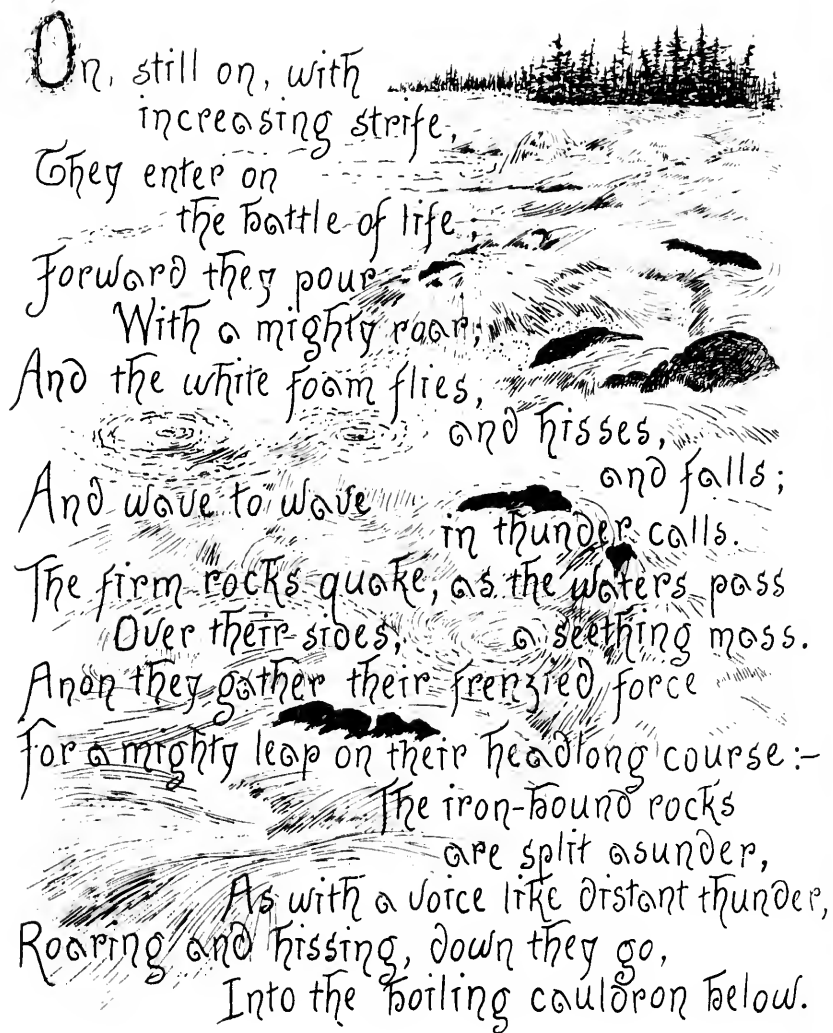 On, still on, with
increasing strife,
They enter on
the battle of life;
Forward they pour
With a mighty roar;
And the white foam flies,
and hisses,
and falls;
And wave to wave
in thunder calls.
The firm rocks quake, as the waters pass
Over their sides, a seething mass.
Anon they gather their frenzied force
For a mighty leap on their headlong course:-
The iron-bound rocks
are split asunder,
As with a voice like distant thunder,
Roaring and hissing, down they go,
Into the boiling cauldron below.